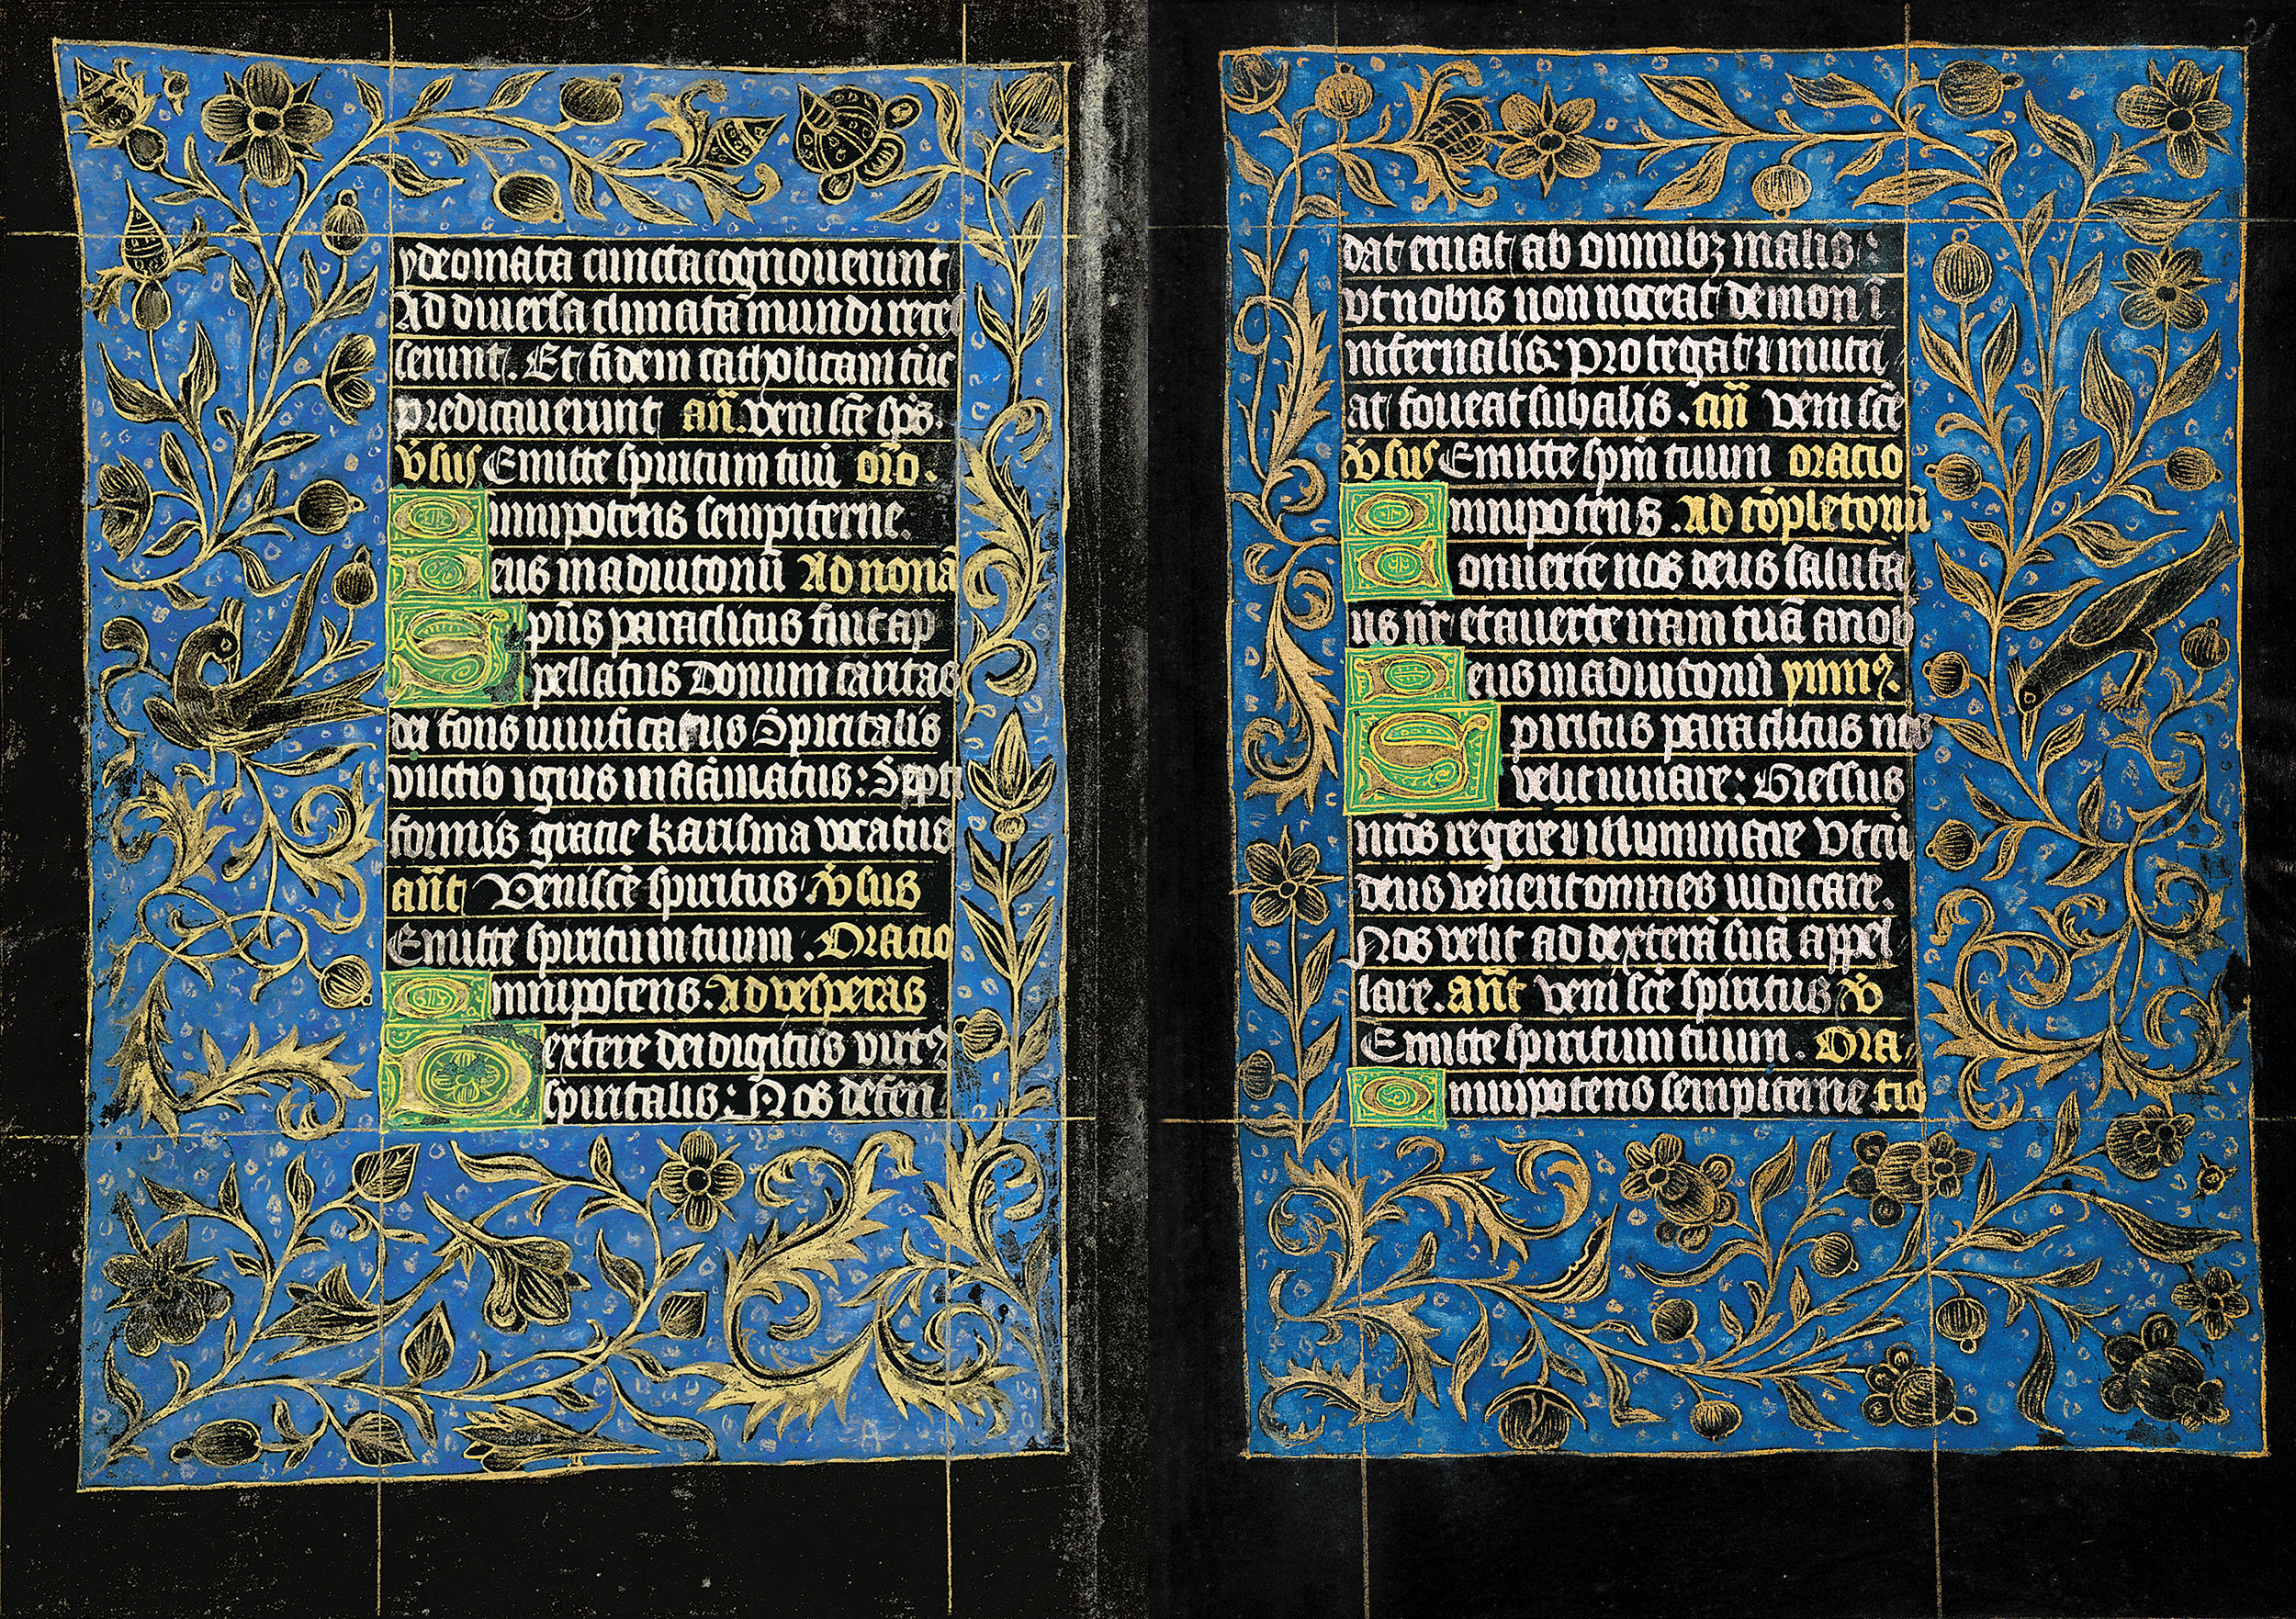 ydeomata cunctacognouerunt
Ad diuersa climata mundi rece
serunt. Et fidem catholicam tūc
predicauerunt an̄. veni sc̄e sp̄s.
v̄sus Emitte spiritum tuū oro.
Omnipotens sempiterne.
Deus in adiutoriū Ad nonā
Spūs paraclitus fuit ap
pellatus Donum caritas
dei fons uiuificatus Spiritalis
vnctio ignis inflāmatus: Septi
formis gratie karisma vocatus
an̄t Veni sc̄e spiritus v̄sus
Emitte spiritum tuum. Oracio
Omnipotens. Ad vesperas
Dextere dei digitus virtꝰ
spiritalis: Nos defen
dat eruat ab omnibꝫ malis:
vt nobis non noceat demon ī
infernalis: Protegat ⁊ nutri
at foueat sub alis. an̄ veni sc̄e
v̄sus Emitte sp̄m tuum oracio
Omnipotens. Ad cōpletoriū
Conuerte nos deus saluta
us nr̄ et auerte iram tuā a nob
Deus in adiutoriū ymnꝰ.
Spiritus paraclitus nos
velit iuuare: Gressus
nrōs regere ⁊ illuminare Vt cū
deus venerit omnes iudicare.
Nos velit ad dexterā suā appel
lare. an̄t veni sc̄e spiritus v̄
Emitte spiritum tuum. Ora-
Omnipotens sempiterne tio